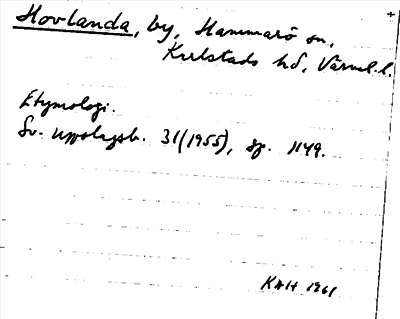 Hovlanda, by, Hammarö sn,
Karlstads hd, Värml. l.
Etymologi.
Sv. uppslagsb. 31 (1955), sp. 1149.
KWH 1961